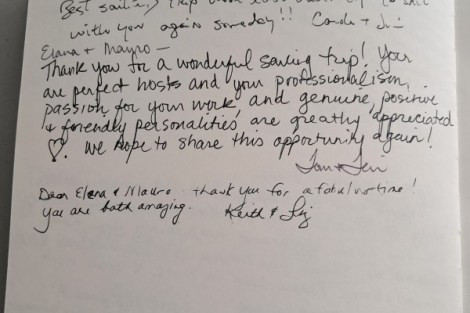 Best sailing trip
with you again someday!! Carola + Jim
Elena + Mauro —
Thank you for a wonderful sailing trip! Your
are perfect hosts and your professionalism,
passion for your work, and genuine, positive
+ friendly personalities are greatly appreciated
♡. We hope to share this opportunity again!
Dear Elena + Mauro. thank you for a fabulous time!
you are both amazing. Keith & Liz